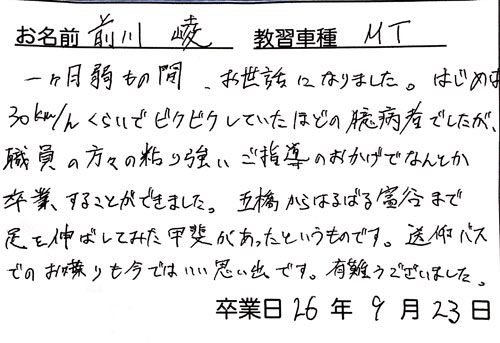 お名前 前川 崚 教習車種 MT
一ヶ月弱もの間、お世話になりました。はじめは
30km/hくらいでビクビクしていたほどの臆病者でしたが、
職員の方々の粘り強いご指導のおかげでなんとか
卒業することができました。五橋からはるばる富谷まで
足を伸ばしてみた甲斐があったというものです。送迎バス
でのお喋りも今ではいい思い出です。有難うございました。
卒業日 26 年 9 月 23 日